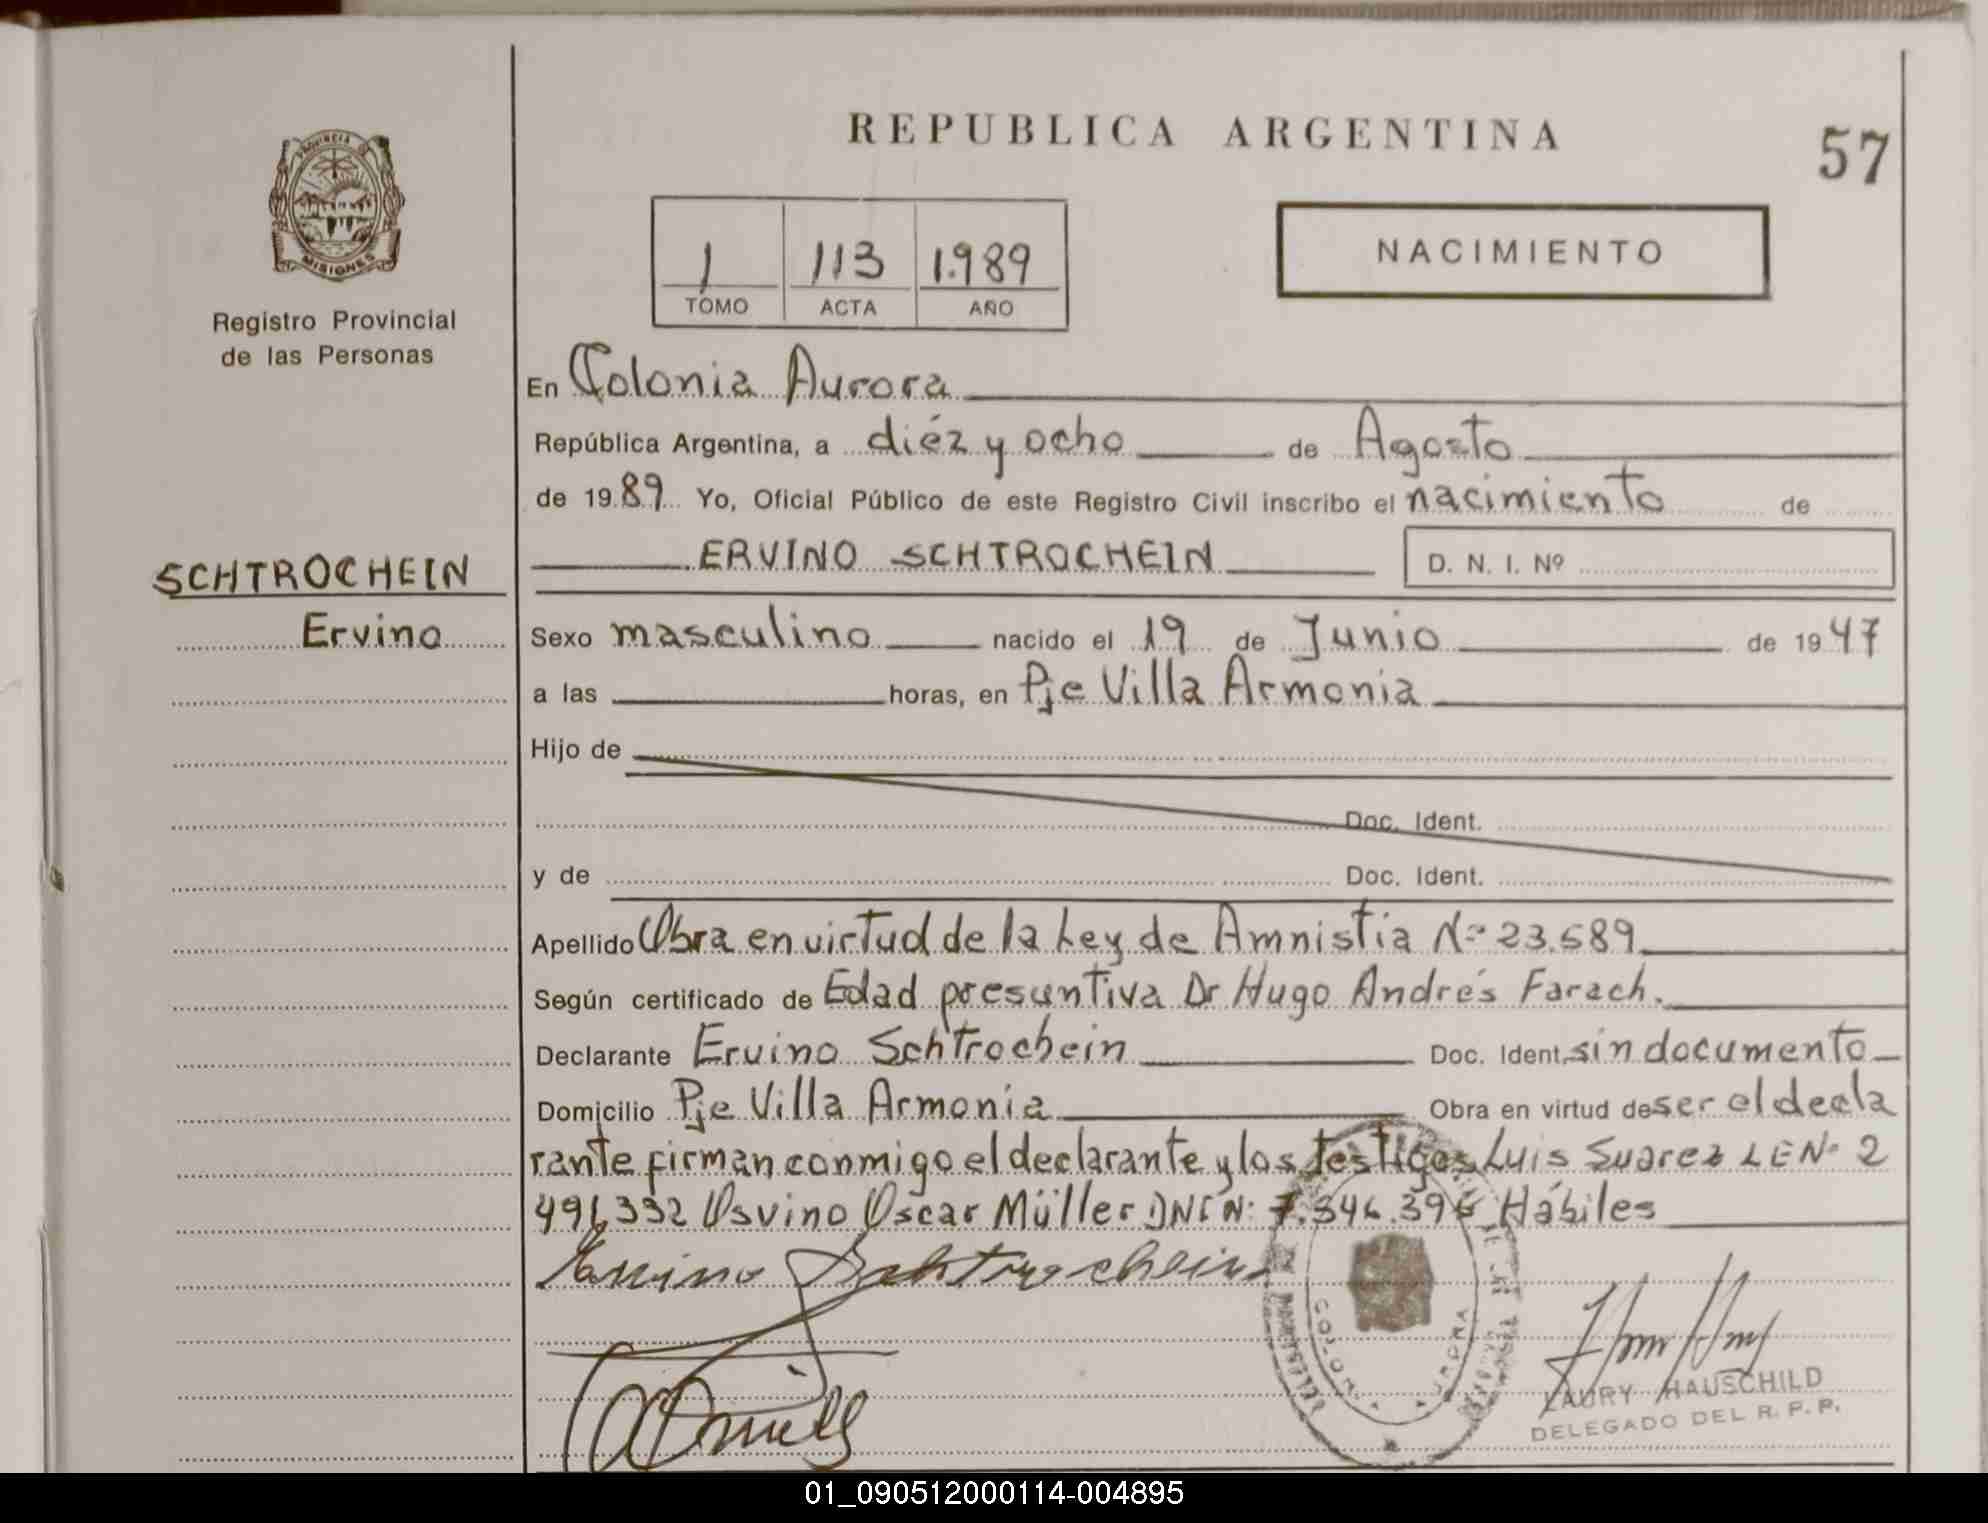 REPUBLICA ARGENTINA
57
PROVINCIA DE
MISIONES
Registro Provincial
de las Personas
1 113 1.989
TOMO ACTA AÑO
NACIMIENTO
En Colonia Aurora
República Argentina, a diéz y ocho de Agosto
de 1989 Yo, Oficial Público de este Registro Civil inscribo el nacimiento de
ERVINO SCHTROCHEIN D. N. I. Nº
SCHTROCHEIN
Ervino
Sexo masculino nacido el 19 de Junio de 1947
a las horas, en Pje Villa Armonia
Hijo de
Doc. Ident.
y de Doc. Ident.
Apellido Obra en virtud de la Ley de Amnistia Nº 23.589
Según certificado de Edad presuntiva Dr Hugo Andrés Farach.
Declarante Ervino Schtrochein Doc. Ident. sin documento
Domicilio Pje Villa Armonia Obra en virtud de ser el decla
rante firman conmigo el declarante y los testigos Luis Suarez LE Nº 2
491,332 Osvino Oscar Müller DNI N: 7.546.396 Hábiles
Ervino Schtrochein
COLONIA AURORA
LAURY HAUSCHILD
DELEGADO DEL R. P. P.
01_090512000114-004895